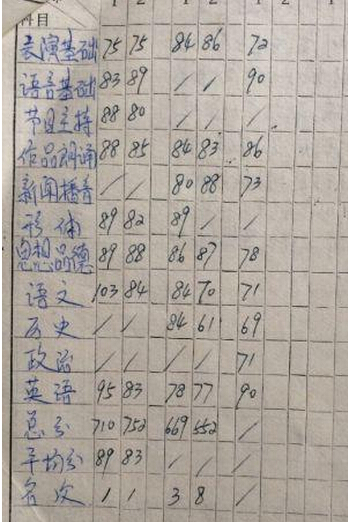 科目 1 2 1 2 1 2
表演基础 75 75 84 86 72
语音基础 83 89 / / 90
节目主持 88 80 / / /
作品朗诵 88 85 84 83 86
新闻播音 / / 80 88 73
形体 89 82 89 / /
思想品德 89 88 86 87 78
语文 103 84 84 70 71
历史 / / 84 61 69
政治 / / / / 71
英语 95 83 78 77 90
总分 710 752 669 552 /
平均分 89 83 / / /
名次 1 1 3 8 /